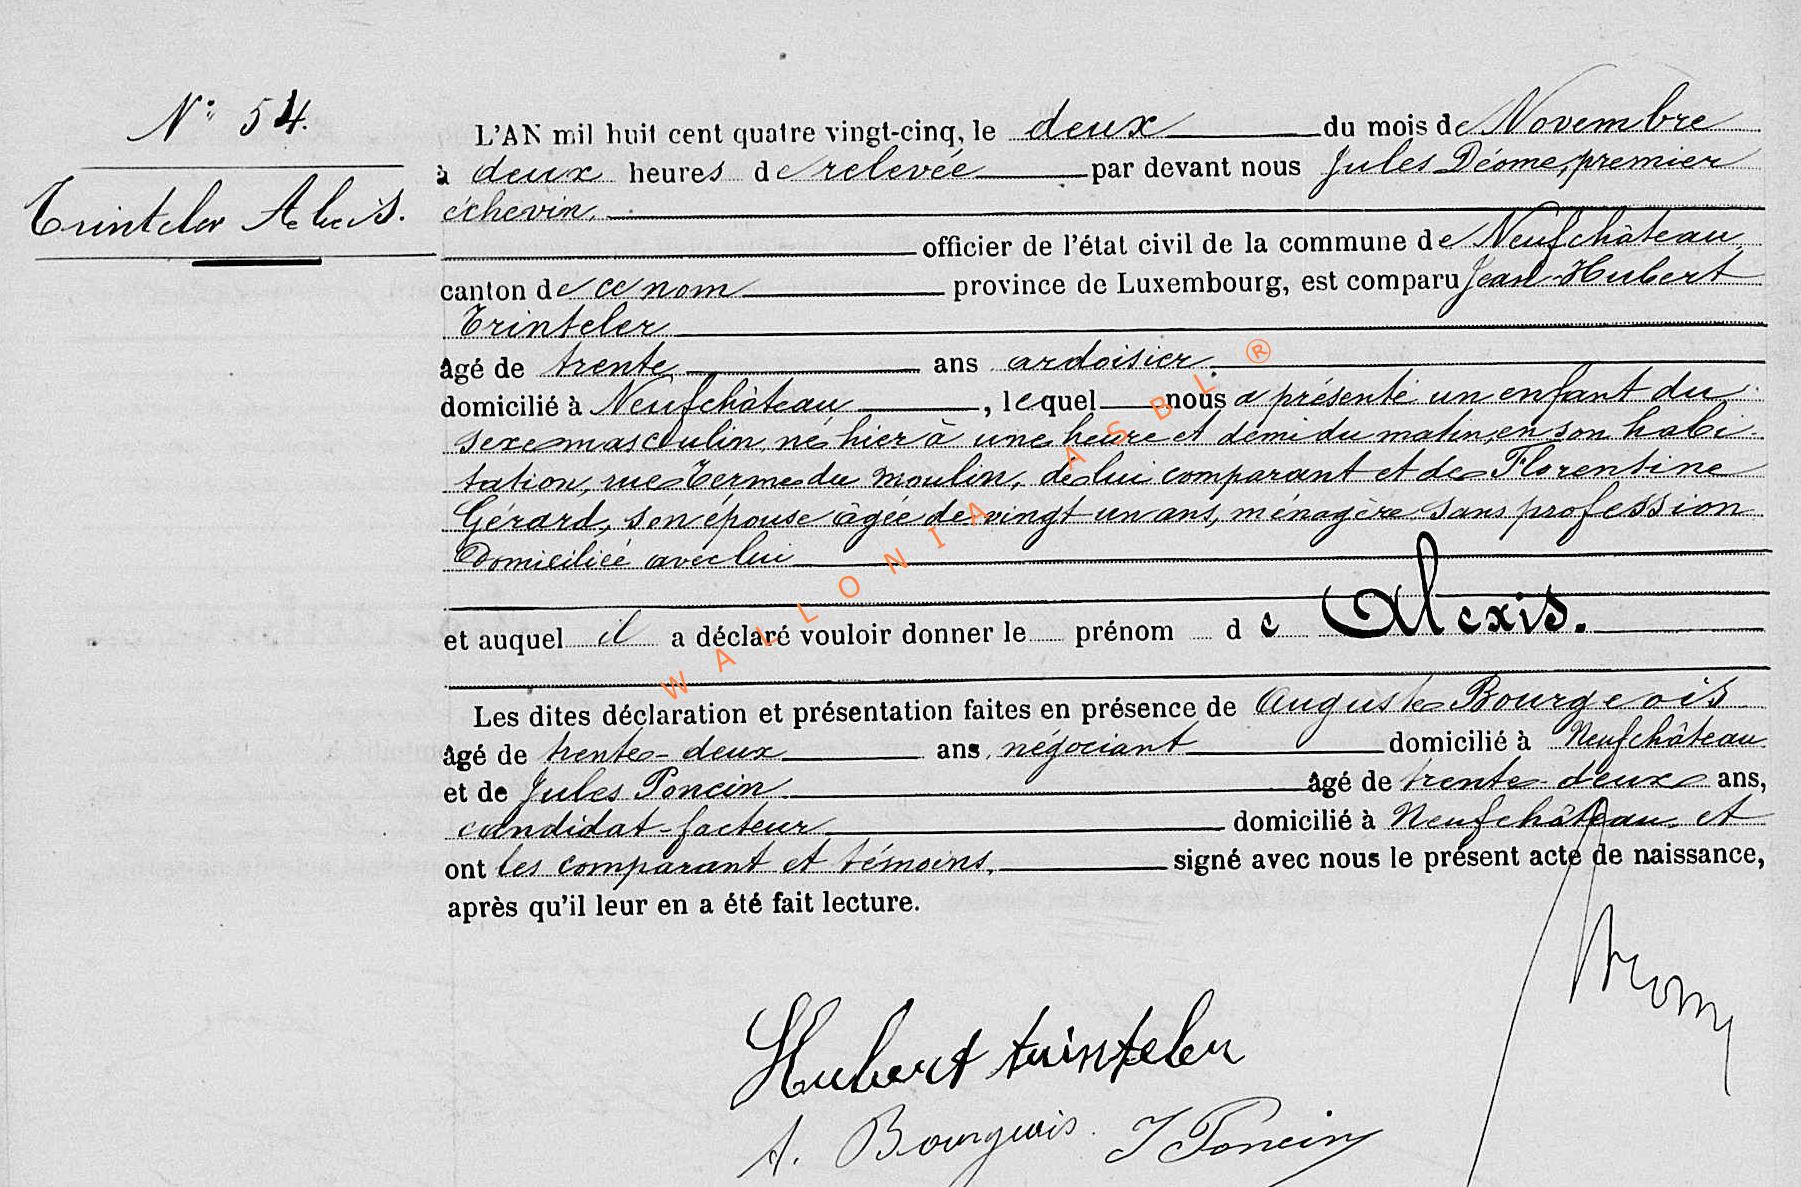 N° 54.
Trinteler Alexis.
L'AN mil huit cent quatre vingt-cinq, le deux du mois de Novembre
à deux heures de relevée par devant nous Jules Déome, premier
échevin,
officier de l'état civil de la commune de Neufchâteau,
canton de ce nom province de Luxembourg, est comparu Jean-Hubert
Trinteler
âgé de trente ans ardoisier,
domicilié à Neufchâteau, lequel nous a présenté un enfant du
sexe masculin, né hier à une heure et demi du matin, en son habi
tation, rue Terme du moulin, de lui comparant et de Florentine
Gérard, son épouse âgée de vingt un ans, ménagère, sans profession
Domiciliée avec lui
et auquel il a déclaré vouloir donner le prénom de Alexis.
Les dites déclaration et présentation faites en présence de Auguste Bourgeois
âgé de trente-deux ans, négociant domicilié à Neufchâteau
et de Jules Poncin âgé de trente-deux ans,
candidat-facteur domicilié à Neufchâteau et
ont les comparant et témoins, signé avec nous le présent acte de naissance,
après qu'il leur en a été fait lecture.
Hubert trinteler
A. Bourgeois. J Poncin
WALLONIA ASBL ®